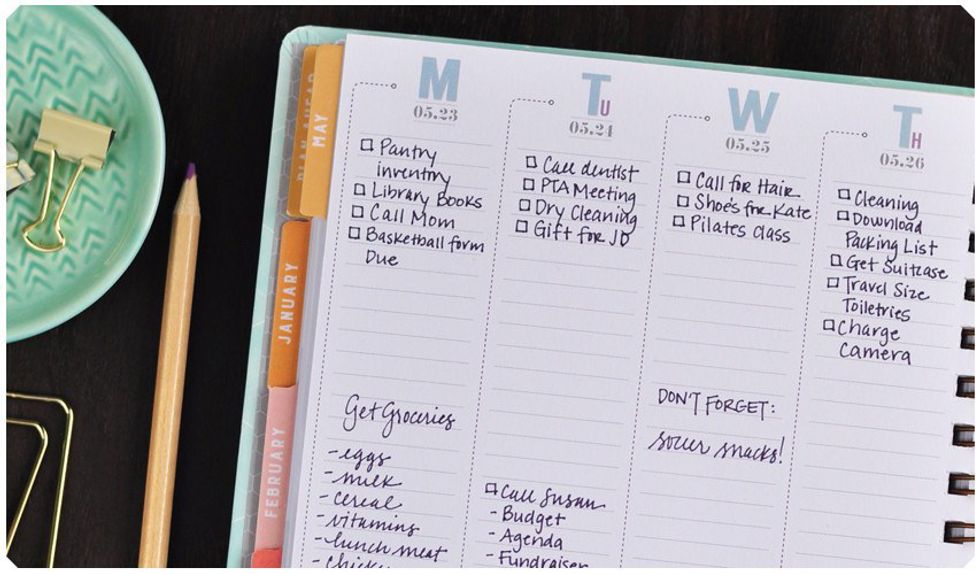 PLAN AHEAD
MAY
JANUARY
FEBRUARY
M
05.23
☐ Pantry
inventory
☐ Library Books
☐ Call Mom
☐ Basketball form
Due
Get Groceries
- eggs
- milk
- cereal
- vitamins
- lunch meat
TU
05.24
☐ Call dentist
☐ PTA Meeting
☐ Dry Cleaning
☐ Gift for JD
☐ Call Susan
- Budget
- Agenda
- Fundraiser
W
05.25
☐ Call for Hair
☐ Shoes for Kate
☐ Pilates class
DON'T FORGET:
soccer snacks!
TH
05.26
☐ Cleaning
☐ Download
Packing List
☐ Get Suitcase
☐ Travel Size
Toiletries
☐ Charge
Camera